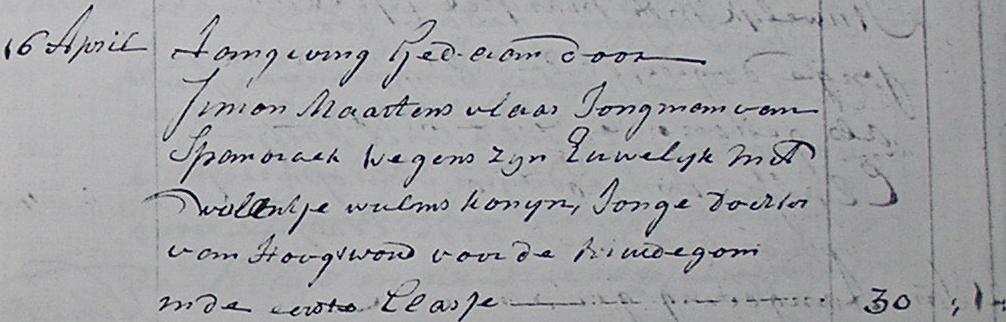 16 April Aangeving Gedaan door
Simon Maartens vlaar Jongman van
Spanbroek wegens zyn Huwelyk met
wulms konyn, Jonge Dochter
van Hoogwoud voor de Bruidegom
in de eerste Classe 30 : 1